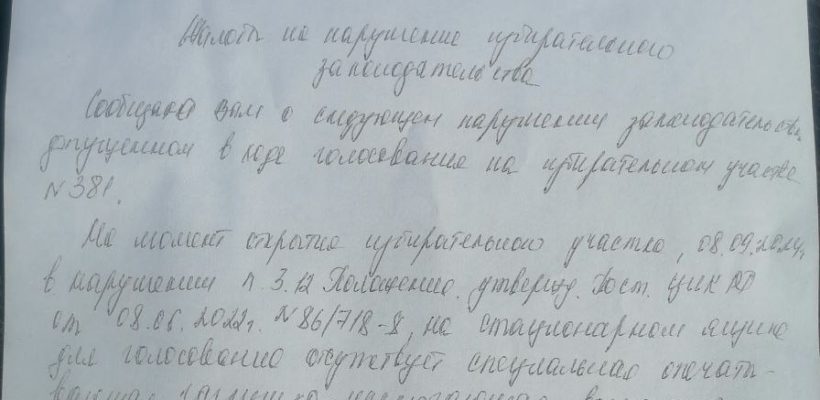 Жалоба на нарушение избирательного
законодательства
Сообщаю Вам о следующем нарушении законодательства
допущенном в ходе голосования на избирательном участке
№ 381.
На момент открытия избирательного участка, 08.09.2024,
в нарушении п. 3.12 Положения, утвержд. Пост. ЦИК РФ
от 08.06.2022г. № 86/718-8, на стационарном ящике
для голосования отсутствует специальная опечаты-
вающая